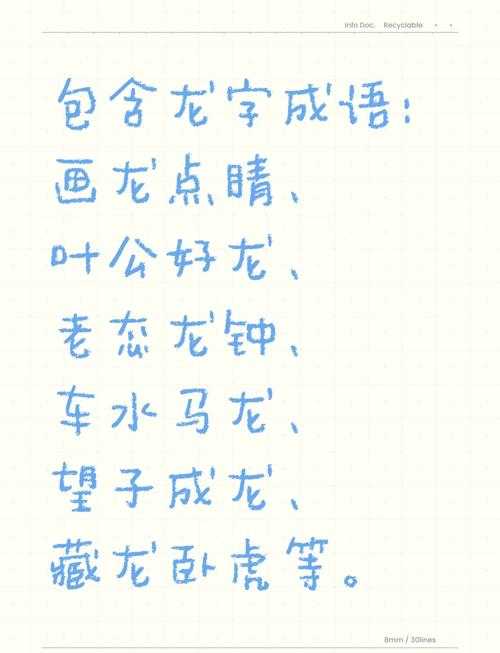 Info Doc. Recyclable
包含龙字成语：
画龙点睛、
叶公好龙、
老态龙钟、
车水马龙、
望子成龙、
藏龙卧虎等。
8mm / 30lines